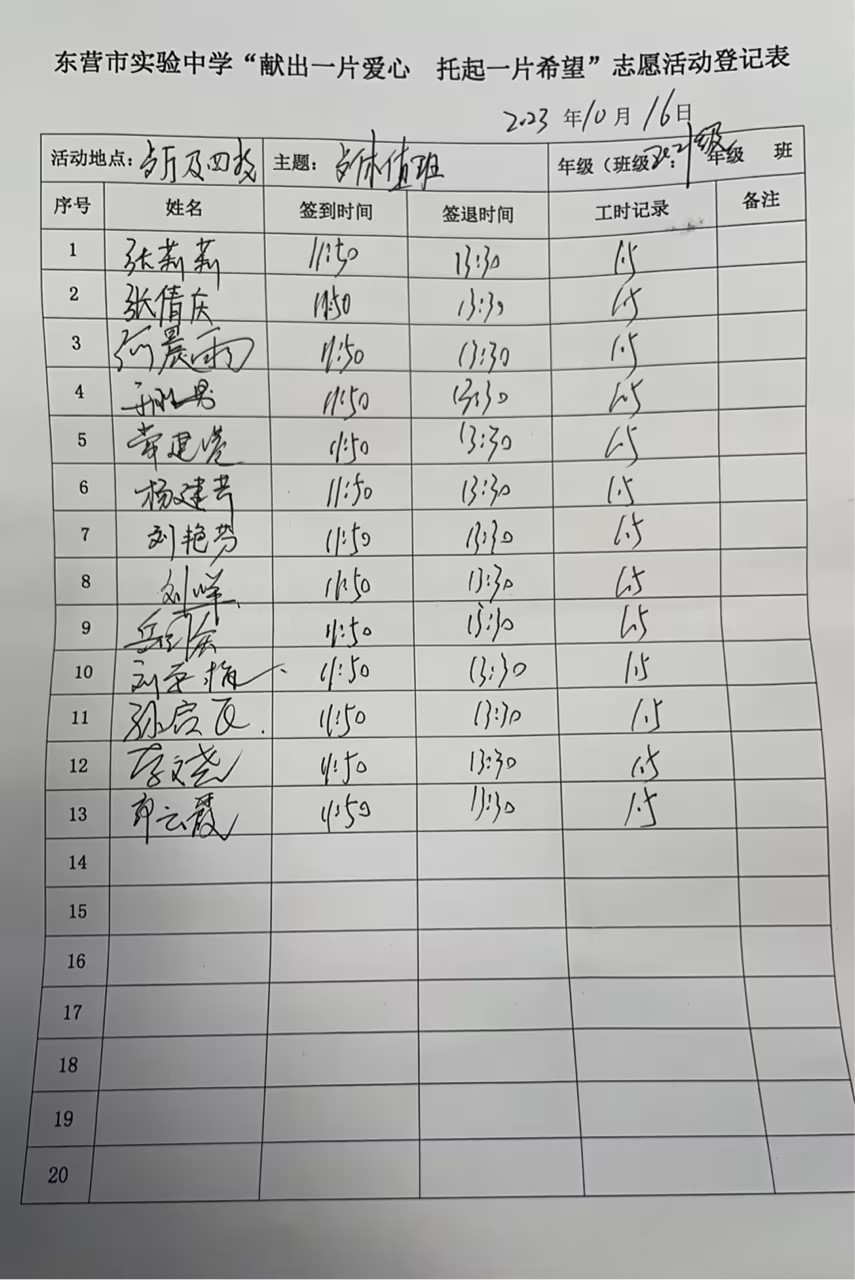 东营市实验中学“献出一片爱心 托起一片希望”志愿活动登记表
2023 年10月16日
活动地点: 及四楼 主题: 午休值班 年级(班级): 2021级 年级 班
序号 姓名 签到时间 签退时间 工时记录 备注
1 张莉莉 11:50 13:30 1.5
2 张倩庆 11:50 13:30 1.5
3 晨雨 11:50 13:30 1.5
4 11:50 13:30 1.5
5 建 11:50 13:30 1.5
6 杨建芳 11:50 13:30 1.5
7 刘艳芳 11:50 13:30 1.5
8 刘 11:50 13:30 1.5
9 11:50 13:30 1.5
10 刘 梅 11:50 13:30 1.5
11 孙 11:50 13:30 1.5
12 李文尧 11:50 13:30 1.5
13 云霞 11:50 13:30 1.5
14
15
16
17
18
19
20